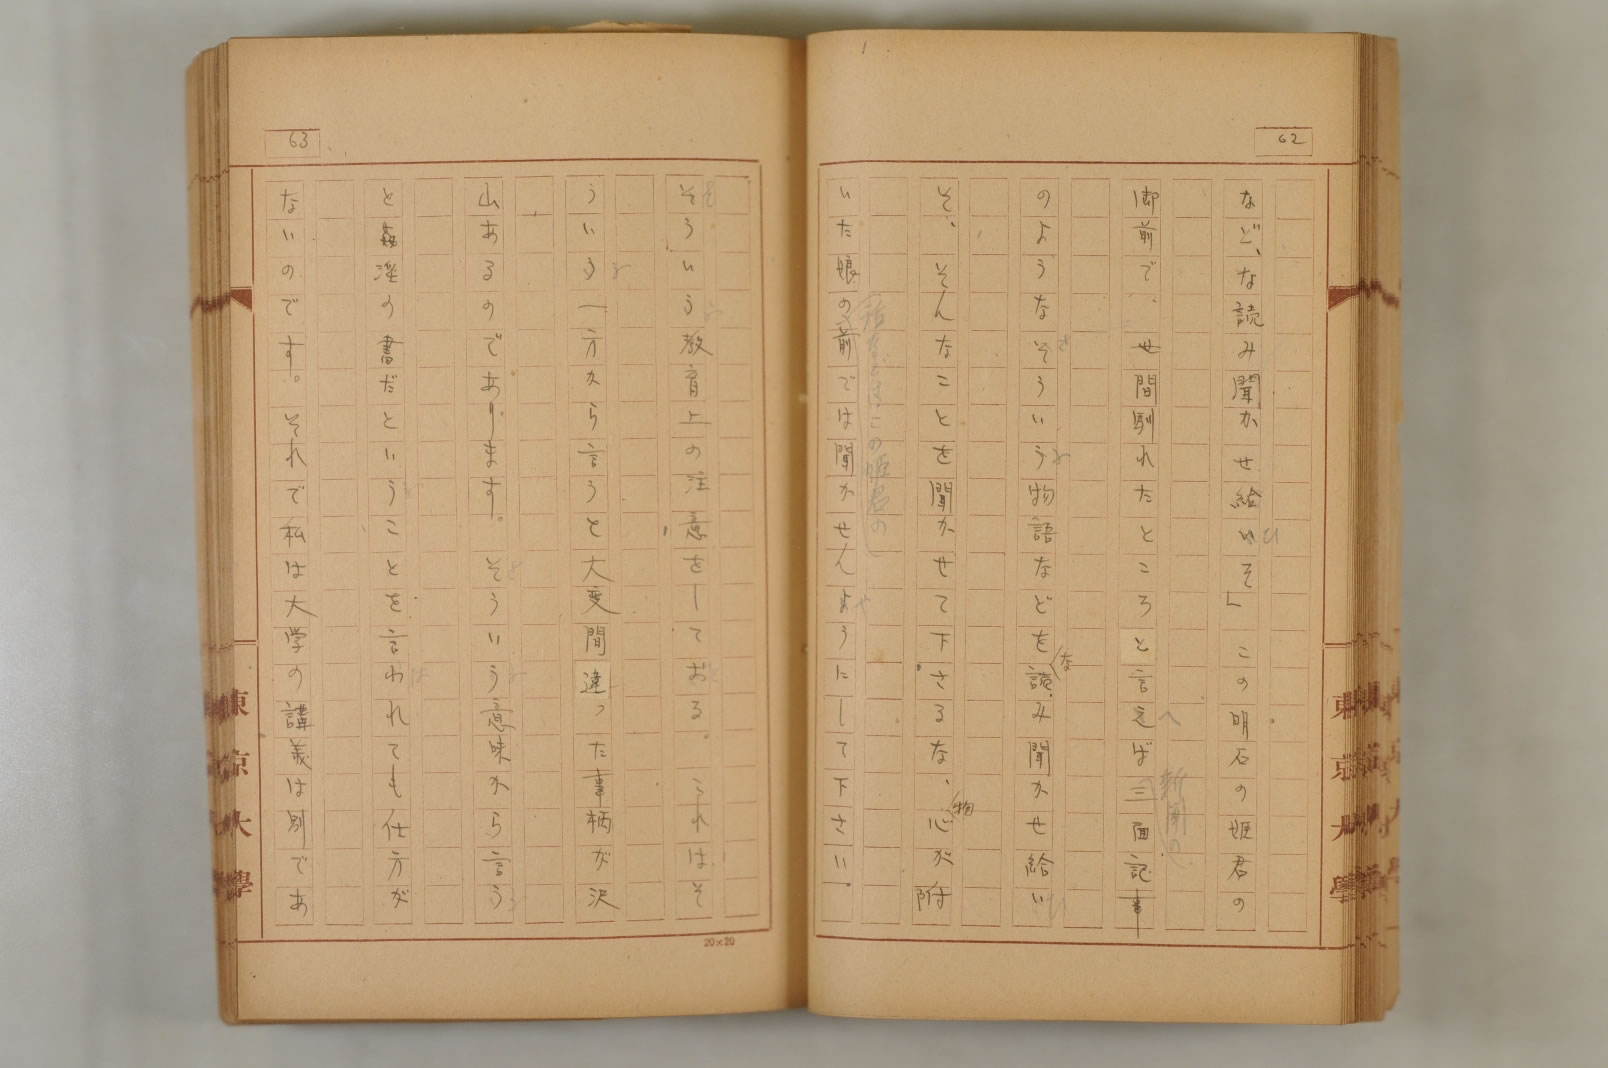 62
など、な読み聞かせ給いそ」この明石の姫君の
ひ
御前で、世間馴れたところと言えば三面記事
へ
新聞の
のようなそういう物語などを読み聞かせ給い
な
ひ
そ、そんなことを聞かせて下さるな、心が附
物
いた娘の前では聞かせんようにして下さい。
や
63
そういう教育上の注意をしておる。これはそ
ういう一方から言うと大変間違った事柄が沢
山あるのであります。そういう意味から言う
と姦淫の書だということを言われても仕方が
は
ないのです。それで私は大学の講義は別であ
20×20
東京大學
東京大學